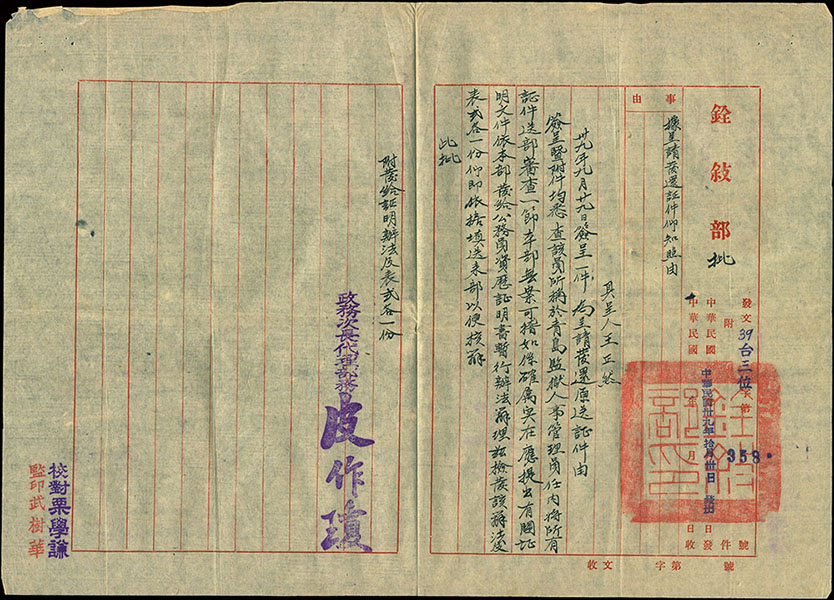 銓敍部 批
事由
據呈請發還証件仰知照由
發文39台三位字第358號
附件
中華民國卅九年拾月卅日發出
中華民國 年 月 日收
收文 字第 號
具呈人王正然
卅九年九月廿九日簽呈一件 為呈請發還原送証件由
簽呈暨附件均悉查該員所稱於青島監獄人事管理員任內將所有
証件送部審查一節本部無案可稽如係確屬實在應提出有關証
明文件依本部發給公務員資歷証明書暫行辦法辦理茲檢發該辦法及
表式各一份仰即依式填送來部以便核辦
此批
附發給証明辦法及表式各一份
政務次長代理部務
皮作瓊
校對栗學謙
監印武樹華